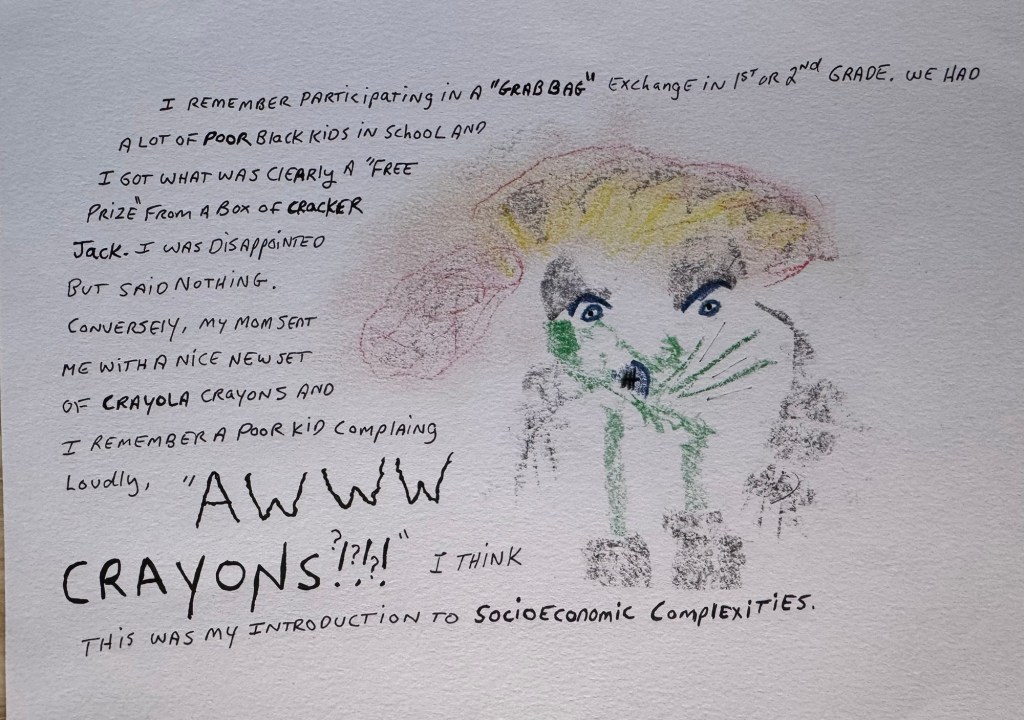 I REMEMBER PARTICIPATING IN A "GRAB BAG" EXCHANGE IN 1ST OR 2ND GRADE. WE HAD
A LOT OF POOR BLACK KIDS IN SCHOOL AND
I GOT WHAT WAS CLEARLY A "FREE
PRIZE" FROM A BOX OF CRACKER
JACK. I WAS DISAPPOINTED
BUT SAID NOTHING.
CONVERSELY, MY MOM SENT
ME WITH A NICE NEW SET
OF CRAYOLA CRAYONS AND
I REMEMBER A POOR KID COMPLAING
LOUDLY, "AWWW
CRAYONS?!?!?!" I THINK
THIS WAS MY INTRODUCTION TO SOCIOECONOMIC COMPLEXITIES.